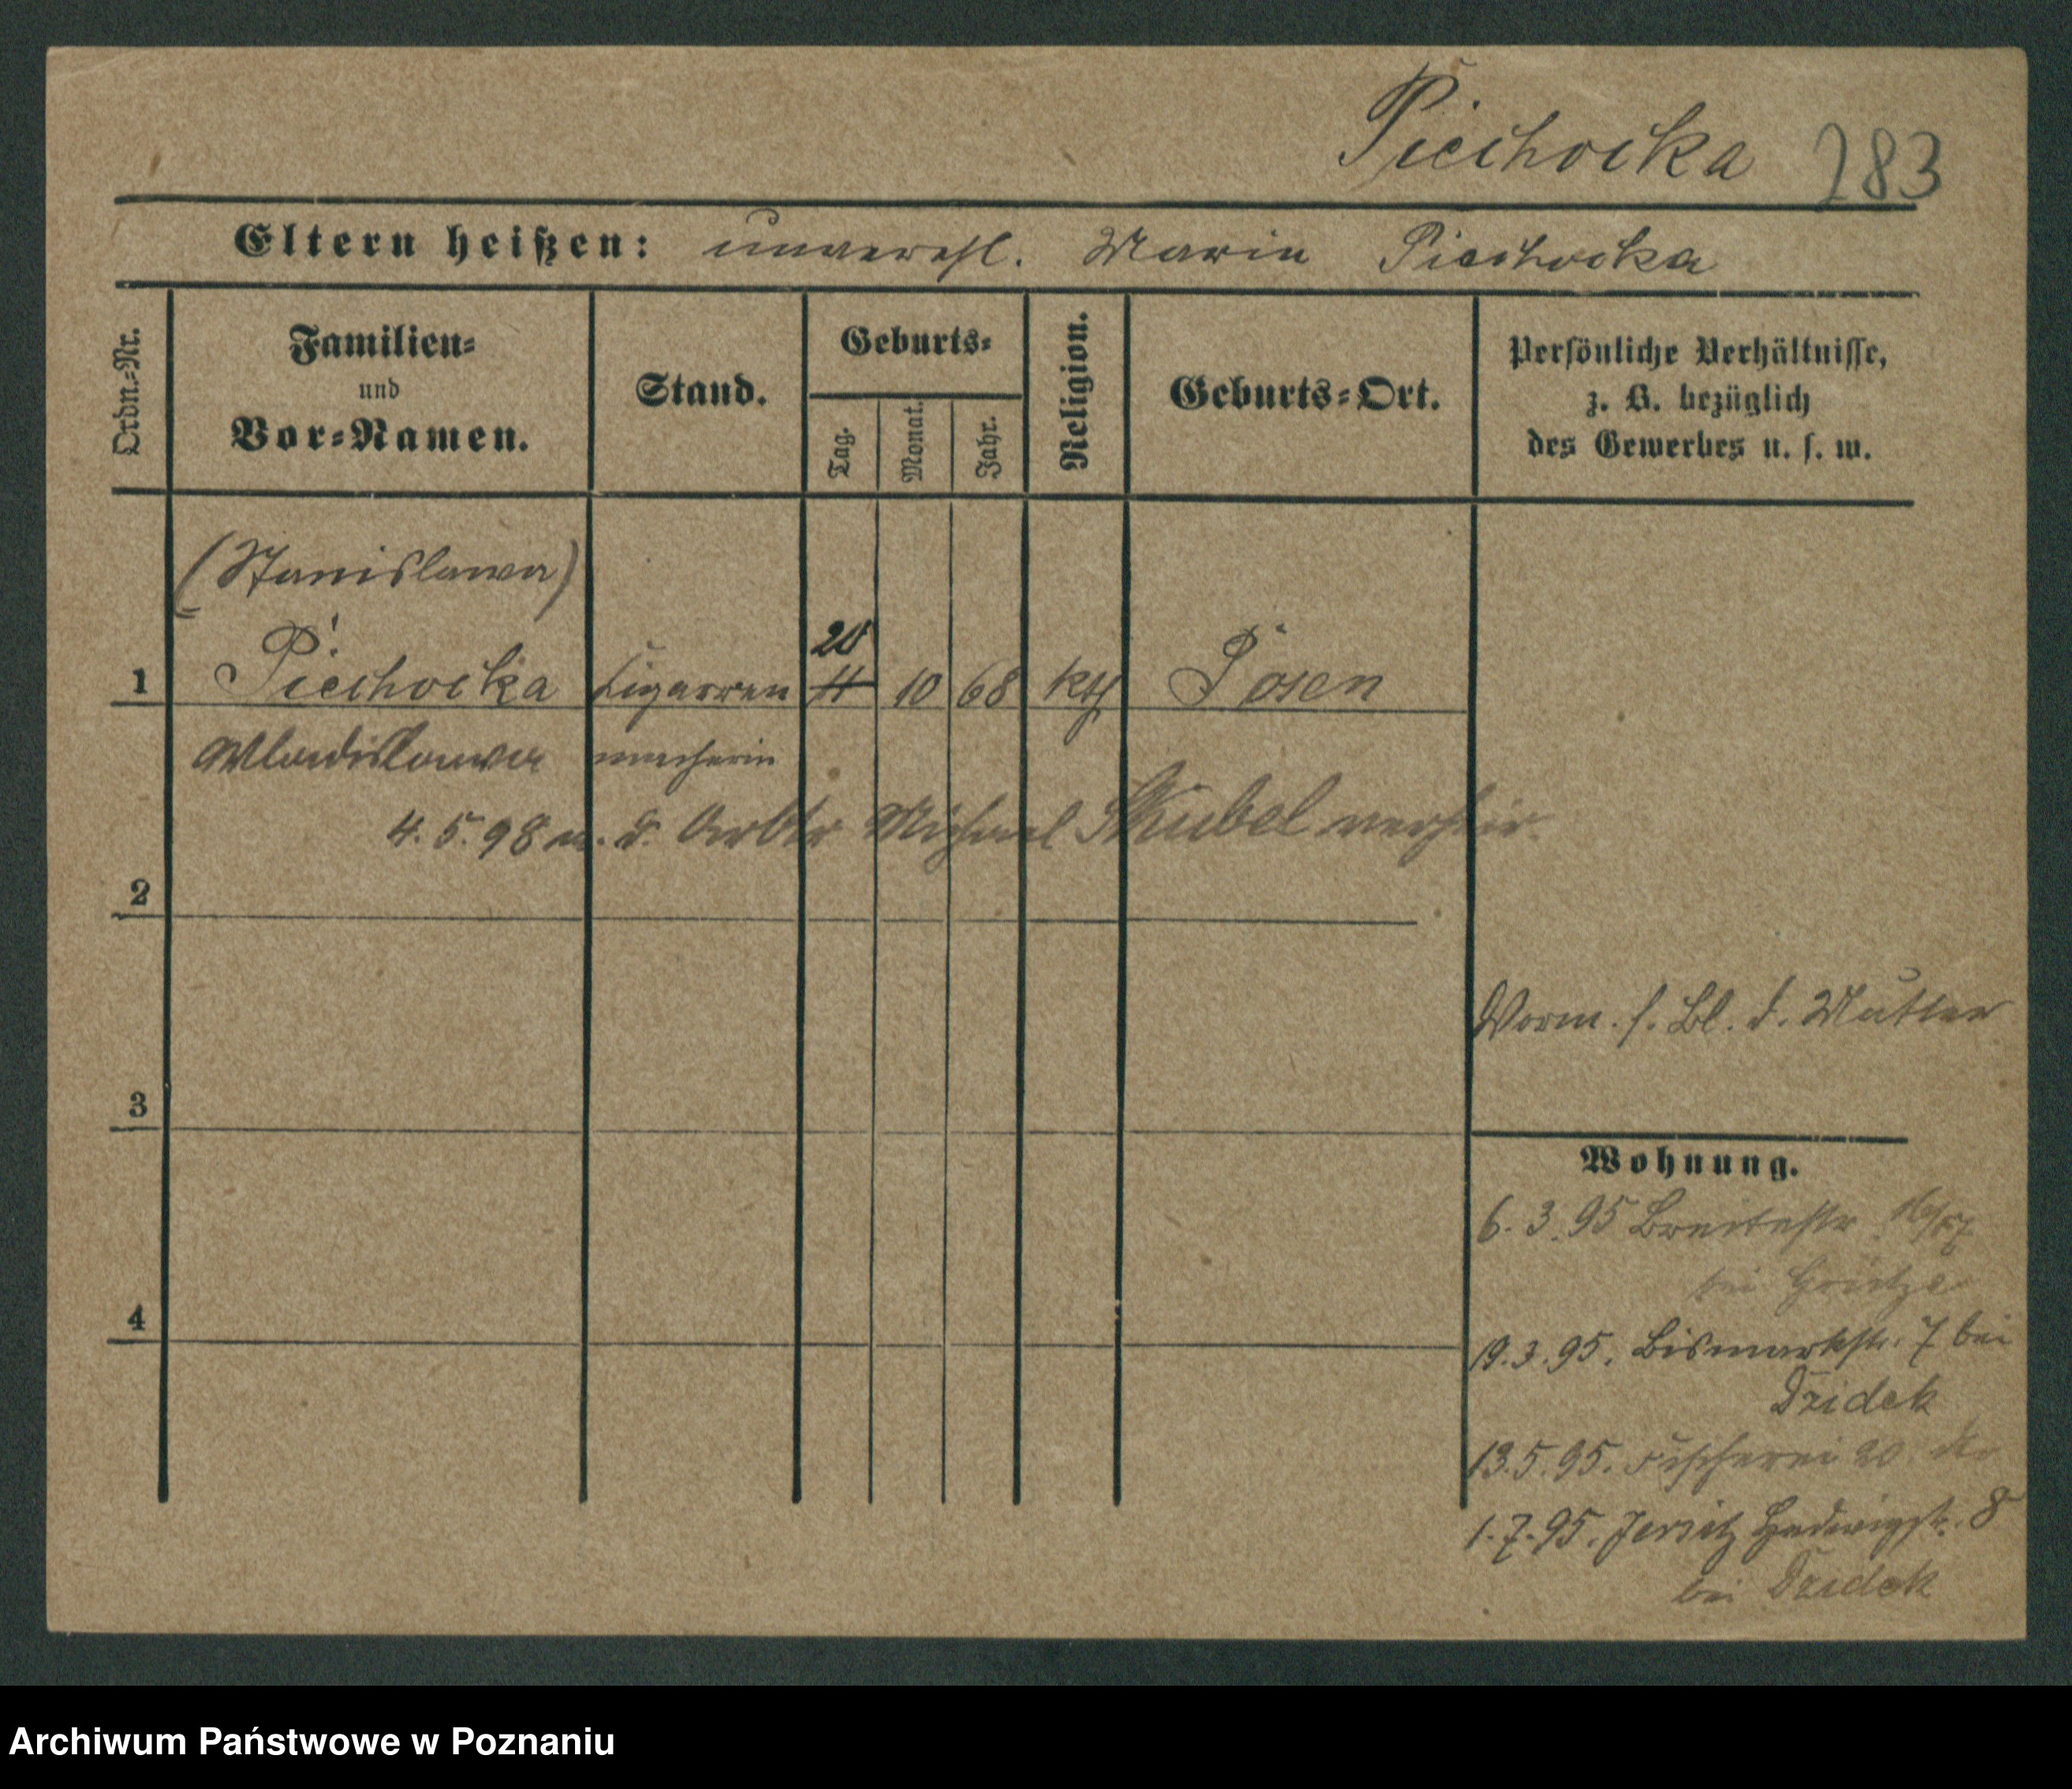 Piechocka 283
Eltern heißen: unverehl. Maria Piechocka
Ordn.-Nr.
Familien- und Vor-Namen.
Stand.
Geburts-
Tag.
Monat.
Jahr.
Religion.
Geburts-Ort.
Persönliche Verhältnisse,
z. B. bezüglich
des Gewerbes u. s. w.
(Stanislawa)
20
1 Piechocka Cigarren 11 10 68 kth Posen
Wladislawa macherin
4.5.98 m. d. Arbtr Michael Skubel verheir.
2
Vorm. s. Bl. d. Mutter
3
Wohnung.
6.3.95 Breitestr.
bei
4
19.3.95. Bismarkstr. 7 bei
Dzidek
13.5.95. Fischerei 20
1.7.95. Jersitz Hedwigstr. 8
bei Dzidek
Archiwum Państwowe w Poznaniu